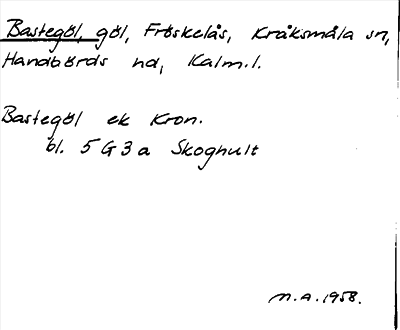 Bastegöl, göl, Fröskelås, Kråksmåla sn,
Handbörds hd, Kalm. l.
Bastegöl ek Kron.
bl. 5 G 3 a Skoghult
M.A. 1958.